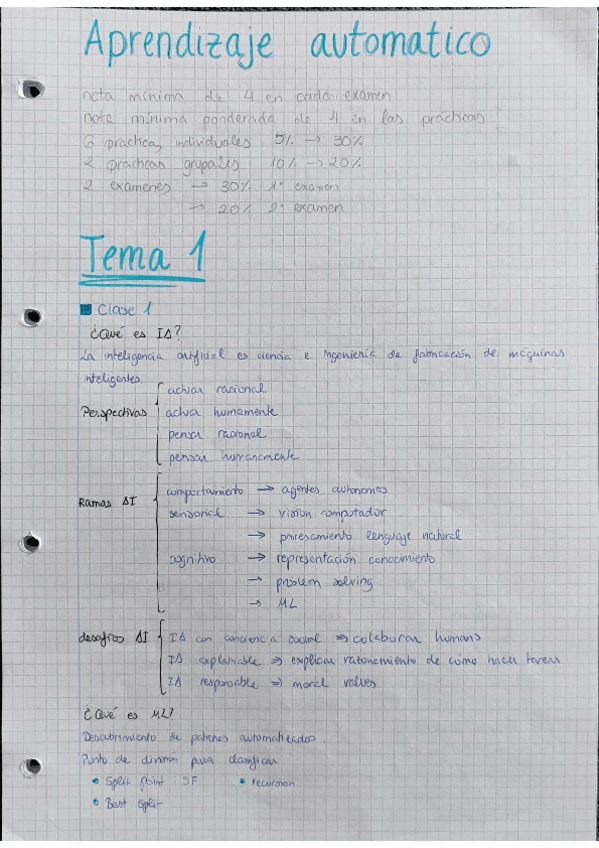 Aprendizaje automatico
nota mínima de 4 en cada examen
nota mínima ponderada de 4 en las prácticas
6 practicas individuales 5% → 30%
2 practicas grupales 10% → 20%
2 examenes → 30% 1º examen
→ 20% 2º examen
Tema 1
Clase 1
¿Qué es IA?
La inteligencia artificial es ciencia e ingeniería de fabricación de máquinas
inteligentes.
Perspectivas
actuar racional
actuar humamente
pensar racional
pensar humanamente
Ramas AI
comportamiento → agentes autonomos
sensorial → vision computador
→ procesamiento lenguaje natural
cognitivo → representación conocimiento
→ problem solving
→ ML
desafios AI
IA con conciencia social ⇒ colaborar humans
IA explainable ⇒ explicar razonamiento de cómo hacer tareas
IA responsable ⇒ moral values
¿Qué es ML?
Descubrimiento de patrones automatizados.
Punto de division para clasificar
• Split point: SF • recursion
• Best split